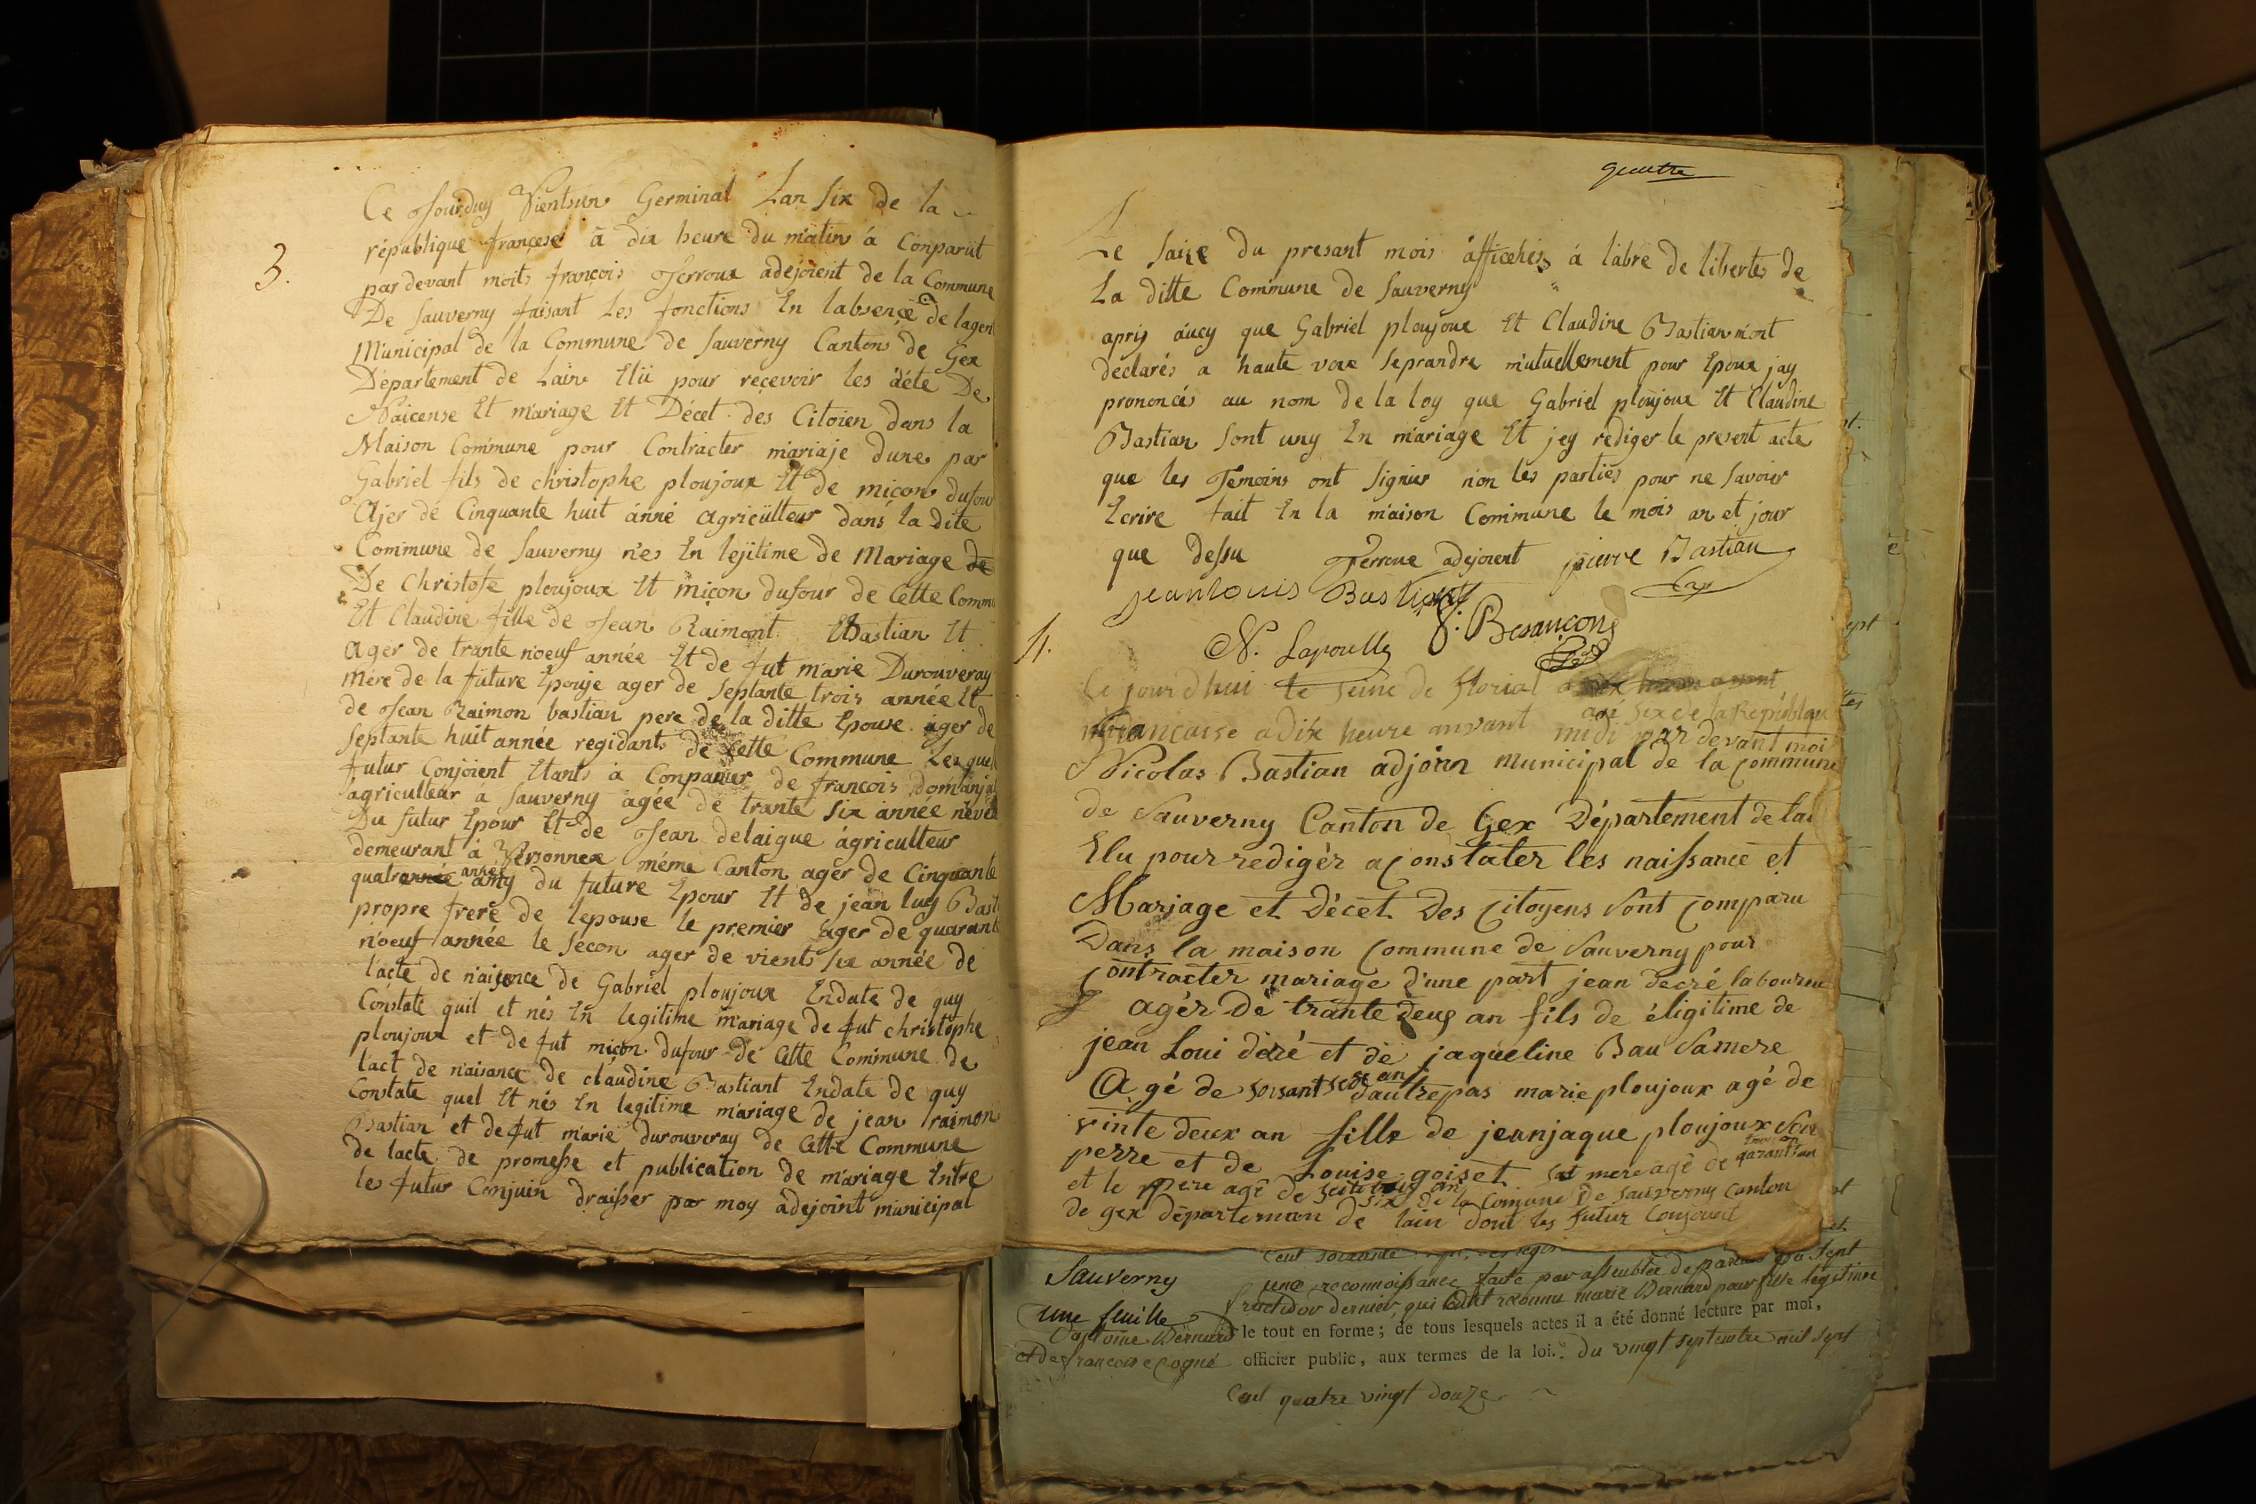 Ce Jourduy Vientsun Germinal Lan Six de la
3.
république françese à dix heure du matin à Conparut
par devant moits françois Perroux adejoient de la Commune
De Sauverny faisant Les fonctions En labsençe de lagent
Municipal de la Commune de Sauverny Canton de Gex
Département de Lain Elü pour reçevoir les acte De
Naicense Et mariage Et Décet des Citoien dans la
Maison Commune pour Contracter mariaje dune par
Gabriel fils de christophe ploujoux Et de miçon dufour
Ajer de Cinquante huit anné agriculteur dans la dite
Commune de Sauverny nes En lejitime de Mariage de
De Christofe ploujoux Et miçon dufour de Cette Comm
Et Claudine fille de Jean Raimont Bastian Et
Ager de trante noeuf année Et de fut marie Durouveray
mère de la future Epouje ager de Septante trois année Et
de Jean Raimon bastian pere de la ditte Epouse ager de
Septante huit année regidant de Cette Commune Lesquel
futur Conjoient Etant à Conpanier de françois
agriculteur a Sauverny agée de trante Six année neveu
Du futur Epour Et de Jean delaigue agriculteur
demeurant à Versonnex méme Canton ager de Cinquante
quatr année amy du future Epour Et de jean luy Bast
propre frere de lepouse le premier ager de quarante
noeuf année le Secon ager de vient Six année de
lacte de naisence de Gabriel ploujoux Endate de quy
Constate quil et nés En legitime mariage de fut christophe
ploujoux et de fut miçon dufour de Cette Commune de
lact de naisance de claudine Bastiant Endate de quy
Constate quel Et nés En legitime mariage de jean raimon
Bastian et de fut marie durouveray de Cette Commune
de lacte de promesse et publication de mariage Entre
les futur Conjuin draisser par moy adejoint municipal
quatre
Le Saize du presant mois afficehés à labre de libertes de
La ditte Commune de Sauverny
apris aucy que Gabriel ploujoux Et Claudine Bastian mont
déclarés a haute voix Seprandre mutuellement pour Epoux jay
prononcés au nom de la loy que Gabriel ploujoux Et Claudine
Bastian Sont uny En mariage Et jey rediger le present acte
que les Temoins ont Signier non les parties pour ne Savoir
Ecrire fait En la maison Commune le mois an et jour
que dessu Perroux adejoient pierre Bastian
jeanlouis Bastian
Besançon
4.
N. Lapoulle
Ce jourd'hui le Seine de florial
an Six de la République
française a dix heure avant midi par devant moi
Nicolas Bastian adjoin municipal de la Commune
de Sauverny Canton de Gex Département de lai
Elu pour redigér a Constater les naissance et
Mariage et Décet Des Citoyens Sont Comparu
Dans la maison Commune de Sauverny pour
Contracter mariage d'une part jean decré laboureu
agér de trante deus an fils de éligitime de
jean Loui decré et de jaqueline Bau Samere
Agé de soisant an d'autrepas marie ploujoux agé de
vinte deux an fille de jeanjaque ploujoux Son
perre et de Louise goiset Sa mere agé de quarant
et le pere agé de an de la Comune de Sauverny Canton
de gex départeman de lain dont les futur Conjouint
Sauverny
une feuille
Cent soixante
une reconnoissance faite par assemblée de parens
fructidor dernier, qui ont reconnu marie Bernard pour fille légitime
d'antoine Bernard le tout en forme; de tous lesquels actes il a été donné lecture par moi,
et de francoise officier public, aux termes de la loi. Du vingt septembre mil sept
Cent quatre vingt douze